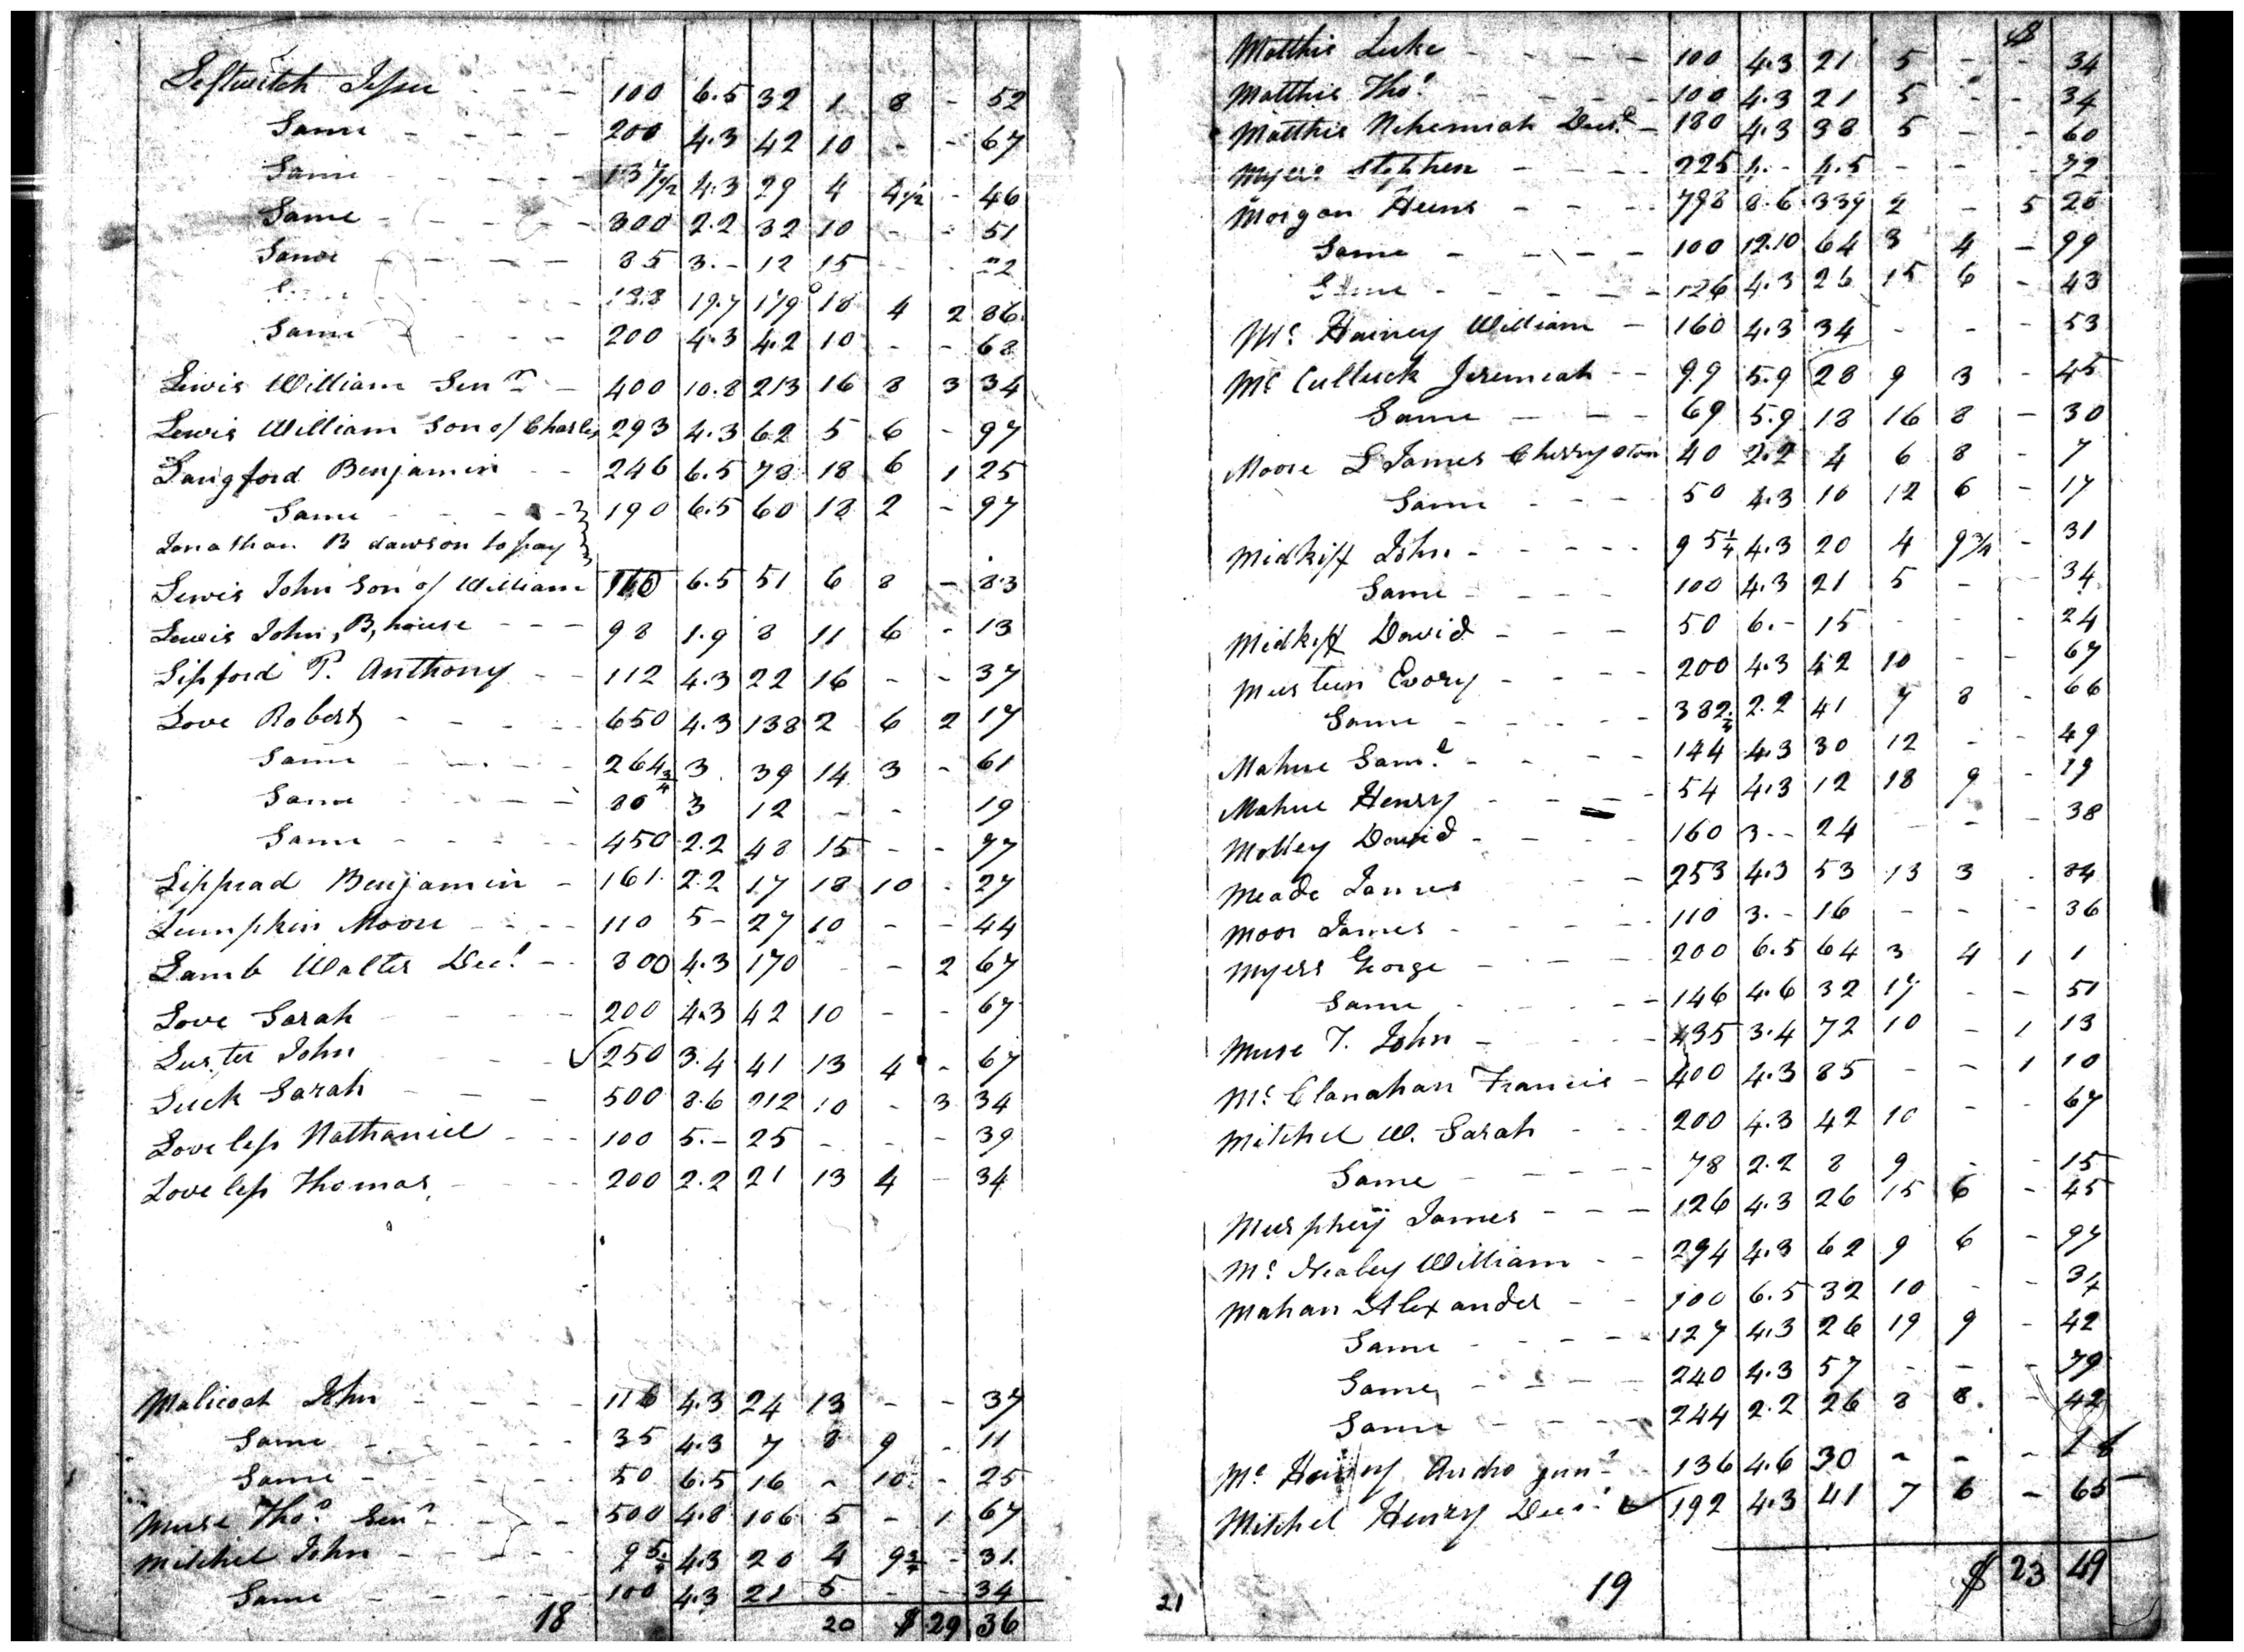 Leftwitch Jesse - - - 100 6.5 32 1 8 - 52
Same - - - - 200 4.3 42 10 - - 67
Same - - - - 137 1/2 4.3 29 4 4 1/2 - 46
Same - - - - 300 2.2 32 10 - - 51
Same - - - - 85 3.- 12 15 - -
- 19.7 179 18 4 2 86
Same - - - 200 4.3 42 10 - - 68
Lewis William Senr - 400 10.8 213 16 8 3 34
Lewis William Son of Charles 293 4.3 62 5 6 - 97
Langford Benjamin - - 246 6.5 78 18 6 1 25
Same - - - - 190 6.5 60 18 2 - 97
Jonathan B dawson to pay
Lewis John Son of William 160 6.5 51 6 8 - 83
Lewis John, B, house - - - 98 1.9 8 11 6 - 13
Lipford T. Anthony - - 112 4.3 22 16 - - 37
Love Robert - - - - 650 4.3 138 2 6 2 17
Same - - - - 264 3/4 3 39 14 3 - 61
Same - - - 80 3 12 - - 19
Same - - - - 450 2.2 48 15 - - 77
Lipprad Benjamin - 161 2.2 17 18 10 - 27
Lumpkin Moore - - - 110 5- 27 10 - - 44
Lamb Walter Dec! - - 800 4.3 170 - - 2 67
Love Sarah - - - 200 4.3 42 10 - - 67
Luster John - - - ✓ 250 3.4 41 13 4 - 67
Luck Sarah - - - 500 8.6 212 10 - 3 34
Loveless Nathaniel - - - 100 5.- 25 - - - 39
Loveless Thomas - - - 200 2.2 21 13 4 - 34
Malicoat John - - - - 116 4.3 24 13 - - 37
Same - - - - 35 4.3 7 8 9 - 11
Same - - - - 50 6.5 16 - 10 - 25
Muse Tho.s Senr - - - 500 4.8 106 5 - 1 67
Mitchel John - - - - 95 1/4 4.3 20 4 9 3/4 - 31
Same - - - - 100 4.3 21 5 - - 34
18 20 $ 29 36
$
Matthis Luke - - - - 100 4.3 21 5 - - 34
Matthis Tho.s - - - - 100 4.3 21 5 - - 34
Matthis Nehemiah Decd - 180 4.3 38 5 - - 60
Myers Stephen - - - 225 4.- 45 - - 72
Morgan Heins - - - 798 8.6 339 2 - 5 28
Same - - - - 100 12.10 64 3 4 - 99
Same - - - - 126 4.3 26 15 6 - 43
Mc Hainey William - 160 4.3 34 - - - 53
Mc Culluck Jeremiah - - 99 5.9 28 9 3 - 45
Same - - - 69 5.9 18 16 8 - 30
Moore L James Cherryston 40 2.2 4 6 8 - 7
Same - - - 50 4.3 10 12 6 - 17
Midkiff John - - - - 95 1/4 4.3 20 4 9 3/4 - 31
Same - - - 100 4.3 21 5 - - 34
Midkiff David - - - 50 6.- 15 - - - 24
Mustun Evory - - - 200 4.3 42 10 - - 67
Same - - - - 382 2.2 41 7 8 - 66
Mahue Saml - - - - 144 4.3 30 12 - - 49
Mahue Henry - - - - 54 4.3 12 18 9 - 19
Motley David - - - - 160 3.- 24 - - - 38
Meade James - - 253 4.3 53 13 3 - 84
Moor James - - - - 110 3.- 16 - - - 36
Myers George - - - 200 6.5 64 3 4 1 1
Same - - - - 146 4.6 32 17 - - 51
Muse T. John - - - - 435 3.4 72 10 - 1 13
Mc Clanahan Francis - 400 4.3 85 - - 1 10
Mitchel W. Sarah - - - 200 4.3 42 10 - - 67
Same - - - - 78 2.2 8 9 - - 15
Murphey James - - - 126 4.3 26 15 6 - 45
Mc Nealey William - - 294 4.3 62 9 6 - 97
Mahan Alexander - - 100 6.5 32 10 - -
Same - - - - 127 4.3 26 19 9 - 42
Same - - - - 240 4.3 57 - - - 79
Same - - - - 244 2.2 26 8 8 - 42
Mc Andro junr - 136 4.6 30 - - -
Mitchel Henry Decd ✓ 192 4.3 41 7 6 - 65
21 19 $ 23 49